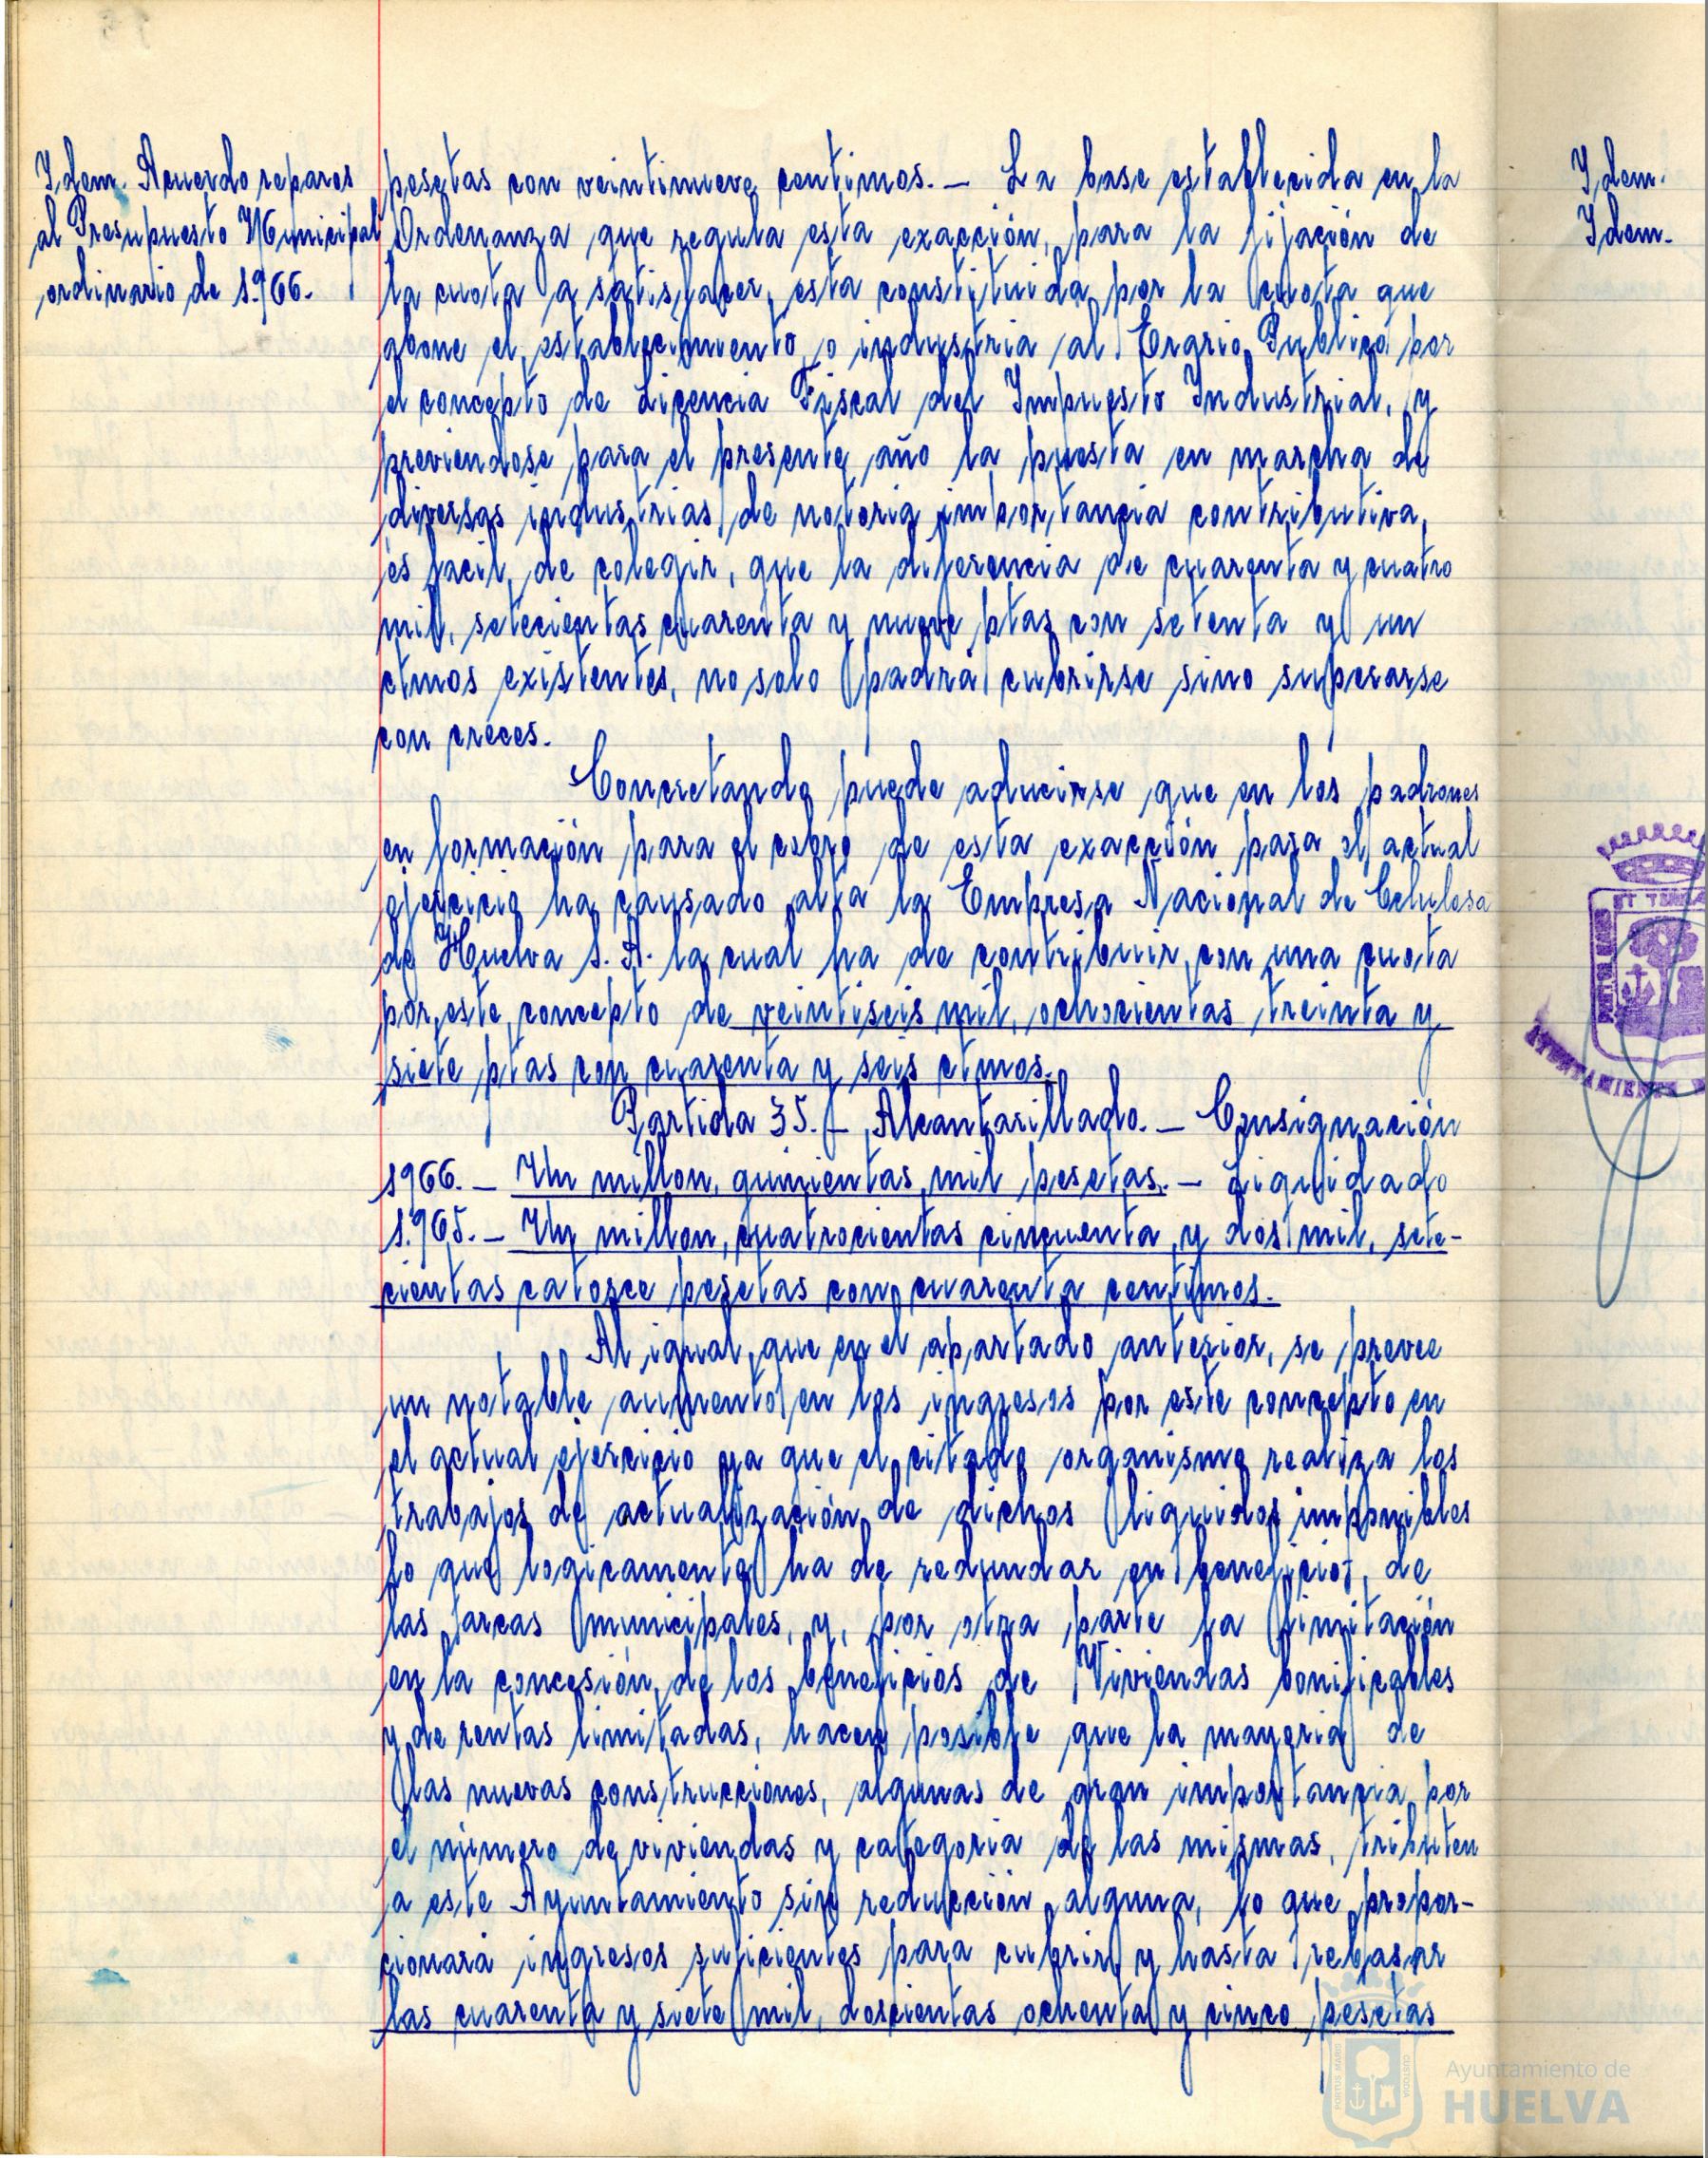 Idem. Acuerdo reparos
al Presupuesto Municipal
ordinario de 1.966.
pesetas con veintinueve centimos. — La base establecida en la
Ordenanza que regula esta exacción, para la fijación de
la cuota a satisfacer, esta constituida por la cuota que
abone el establecimiento o industria al Erario Publico por
el concepto de Licencia Fiscal del Impuesto Industrial, y
previendose para el presente año la puesta en marcha de
diversas industrias de notoria importancia contributiva,
és facil de colegir, que la diferencia de cuarenta y cuatro
mil, setecientas cuarenta y nueve ptas con setenta y un
ctmos existentes, no solo padrá cubrirse sino superarse
con creces.
Concretando puede aducirse que en los padrones
en formación para el cobro de esta exacción para el actual
ejercicio ha causado alta la Empresa Nacional de Celulosa
de Huelva S. A. la cual ha de contribuir con una cuota
por este concepto de veintiseis mil, ochocientas treinta y
siete ptas con cuarenta y seis ctmos.
Partida 35. — Alcantarillado. — Consignación
1966. — Un millon, quinientas mil pesetas. — Liquidado
1.965. — Un millon, cuatrocientas cincuenta y dos mil, sete-
cientas catorce pesetas con cuarenta centimos.
Al igual que en el apartado anterior, se prevee
un notable aumento en los ingresos por este concepto en
el actual ejercicio ya que el citado organismo realiza los
trabajos de actualización de dichos liquidos imponibles
lo que logicamente ha de redundar en beneficios de
las arcas municipales, y, por otra parte la limitación
en la concesión de los beneficios de Viviendas bonificables
y de rentas limitadas, hacen posible que la mayoria de
las nuevas construcciones, algunas de gran importancia por
el número de viviendas y categoria de las mismas, tributen
a este Ayuntamiento sin reducción alguna, lo que propor-
cionará ingresos suficientes para cubrir y hasta rebasar
las cuarenta y siete mil, doscientas ochenta y cinco pesetas
Idem.
Idem.
AYUNTAMIENTO
Ayuntamiento de
HUELVA